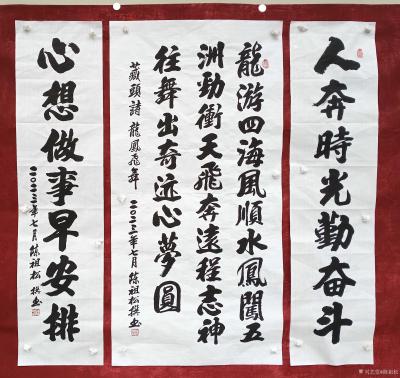 人奔時光勤奋斗
龍游四海風順水鳳闖五
洲勁衝天飛奔遠程志神
往舞出奇迹心夢圓
藏頭詩龍鳳飛舞 二〇二三年七月陈祖松撰书
心想做事早安排
二〇二三年七月陈祖松撰书